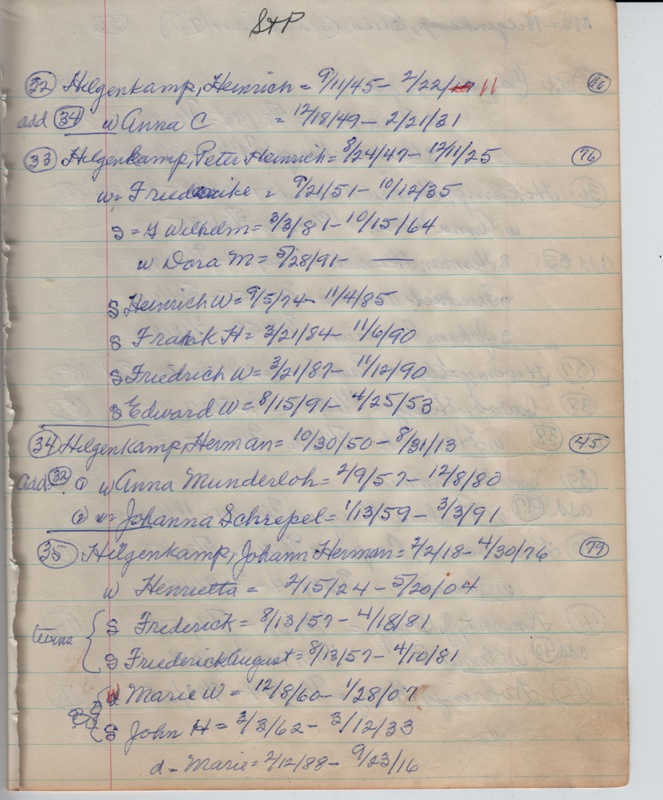 S+P
(32) Helgenkamp, Heinrich = 9/11/45 - 2/22/11 (86)
add (34) w Anna C = 12/18/49 - 2/21/31
(33) Helgenkamp, Peter Heinrich = 8/24/47 - 12/11/25 (76)
w = Friederike = 9/21/51 - 10/12/35
S = G Wilhelm = 3/3/81 - 10/15/64
w Dora M = 5/28/91 - —
S Heinrich W = 9/5/74 - 11/4/85
S Frank H = 2/21/84 - 11/6/90
S Friedrich W = 3/21/87 - 11/12/90
S Edward W = 8/15/91 - 4/25/53
(34) Helgenkamp, Herman = 10/30/50 - 8/31/13 (45)
add (32) (1) w Anna Munderloh = 2/9/57 - 12/8/80
(2) w = Johanna Schrepel = 1/13/59 - 3/3/91
(35) Hilgenkamp, Johann Herman = 2/2/18 - 4/30/76 (79)
w Henrietta = 2/15/24 - 5/20/04
S Frederick = 8/13/57 - 4/18/81
S Friederick August = 8/13/57 - 4/10/81
Marie W = 12/8/60 - 1/28/07
S John H = 3/3/62 - 3/12/33
d - Marie = 2/12/88 - 9/23/16